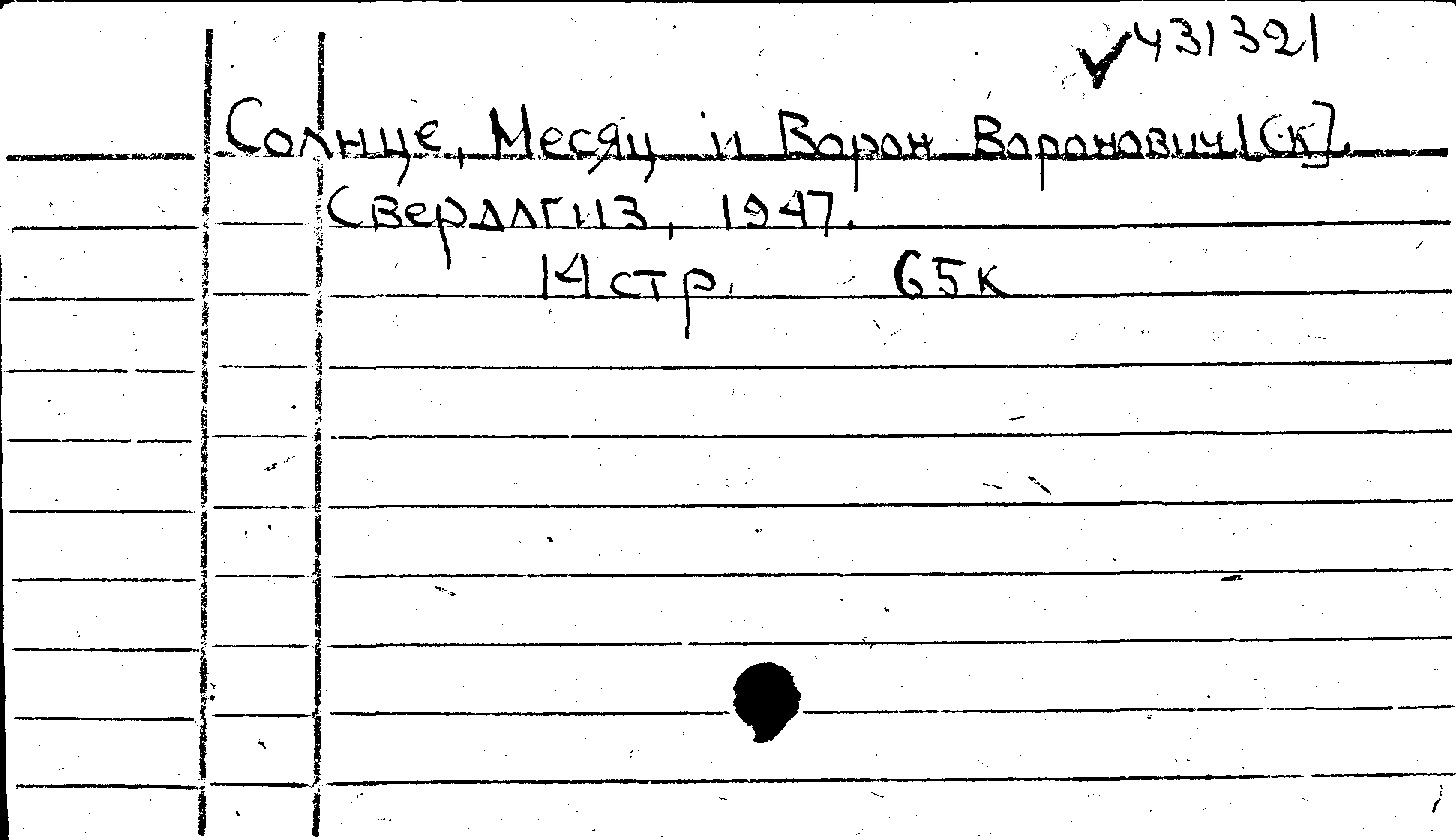 ✓431321
Солнце, Месяц и Ворон Воронович [Ск].
Свердлгиз, 1947.
14 стр. 65к